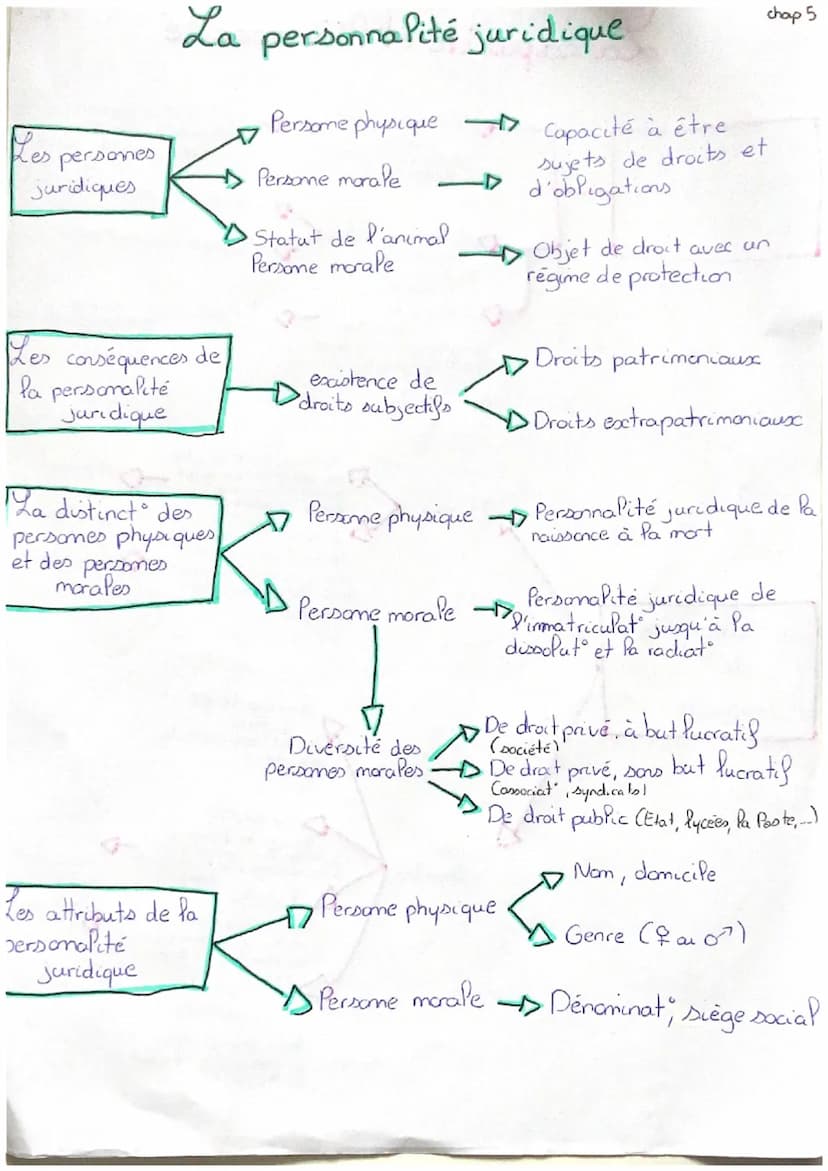 chap 5
La personnalité juridique
Les personnes
juridiques
Personne physique
Capacité à être
sujets de droits et
d'obligations
Personne morale
Statut de l'animal
Personne morale
Objet de droit avec un
régime de protection
Les conséquences de
la personalité
juridique
existence de
droits subjectifs
Droits patrimoniaux
Droits extrapatrimoniaux
La distinct° des
personnes physiques
et des personnes
morales
Personne physique
Personnalité juridique de la
naissance à la mort
Personne morale
Personalité juridique de
l'immatriculat° jusqu'à la
dissolut° et la radiat°
Diversité des
personnes morales
De droit privé, à but lucratif
(société)
De droit privé, sans but lucratif
(associat°, syndicats)
De droit public (Etat, lycées, la Poste, ...)
Les attributs de la
personalité
juridique
Personne physique
Nom, domicile
Genre (♀ ou ♂)
Personne morale
Dénominat°, siège social